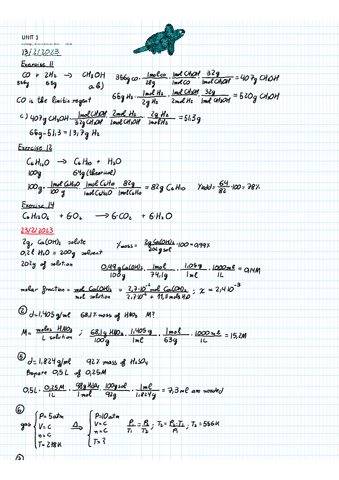 UNIT 1
13/2/2023
Exercise 11
CO + 2H₂ → CH₃OH
356g 65g a.b)
356g CO · 1mol CO / 28g · 1mol CH₃OH / 1mol CO · 32g / 1mol CH₃OH = 407g CH₃OH
65g H₂ · 1mol H₂ / 2g H₂ · 1mol CH₃OH / 2mol H₂ · 32g / 1mol CH₃OH = 520g CH₃OH
CO is the limitin regent
c) 407g CH₃OH · 1mol CH₃OH / 32g CH₃OH · 2mol H₂ / 1mol CH₃OH · 2g H₂ / 1mol H₂ = 51,3g
65g - 51,3 = 13,7g H₂
Exercise 13
C₆H₁₂O → C₆H₁₀ + H₂O
100g 64g (theorical)
100g · 1mol C₆H₁₂O / 100g · 1mol C₆H₁₀ / 1mol C₆H₁₂O · 82g / 1mol C₆H₁₀ = 82g C₆H₁₀ Yield = 64/82 · 100 = 78%
Exercise 14
C₆H₁₂O₆ + 6O₂ → 6CO₂ + 6H₂O
23/2/2023
2g Ca(OH)₂ solute
% mass = 2g Ca(OH)₂ / 202g sol · 100 = 0,99%
0,2l H₂O = 200g solvent
202g of solution
0,99g Ca(OH)₂ / 100g · 1mol / 74,1g · 1,05g / 1ml · 1000ml / 1L = 0,14M
molar fraction = mol Ca(OH)₂ / mol solution = 2,7·10⁻² mol Ca(OH)₂ / 2,7·10⁻² + 11,1 mol H₂O ; x = 2,4·10⁻³
② d = 1,405 g/ml 68,1% mass of HNO₃ M?
M = moles HNO₃ / L solution ; 68,1g HNO₃ / 100g · 1,405g / 1ml · 1mol / 63g · 1000ml / 1L = 15,2M
④ d = 1,824 g/ml 92% mass of H₂SO₄
Prepare 0,5L of 0,25M
0,5L · 0,25M / 1L · 98g H₂SO₄ / 1mol · 100g sol / 92g · 1ml / 1,824g = 7,3 ml are needed
⑥
gas { P=5atm V=C n=C T=278K → Δ { P=10atm V=C n=C T=? P₁/T₁ = P₂/T₂ ; T₂ = P₂·T₁/P₁ ; T₂ = 556K